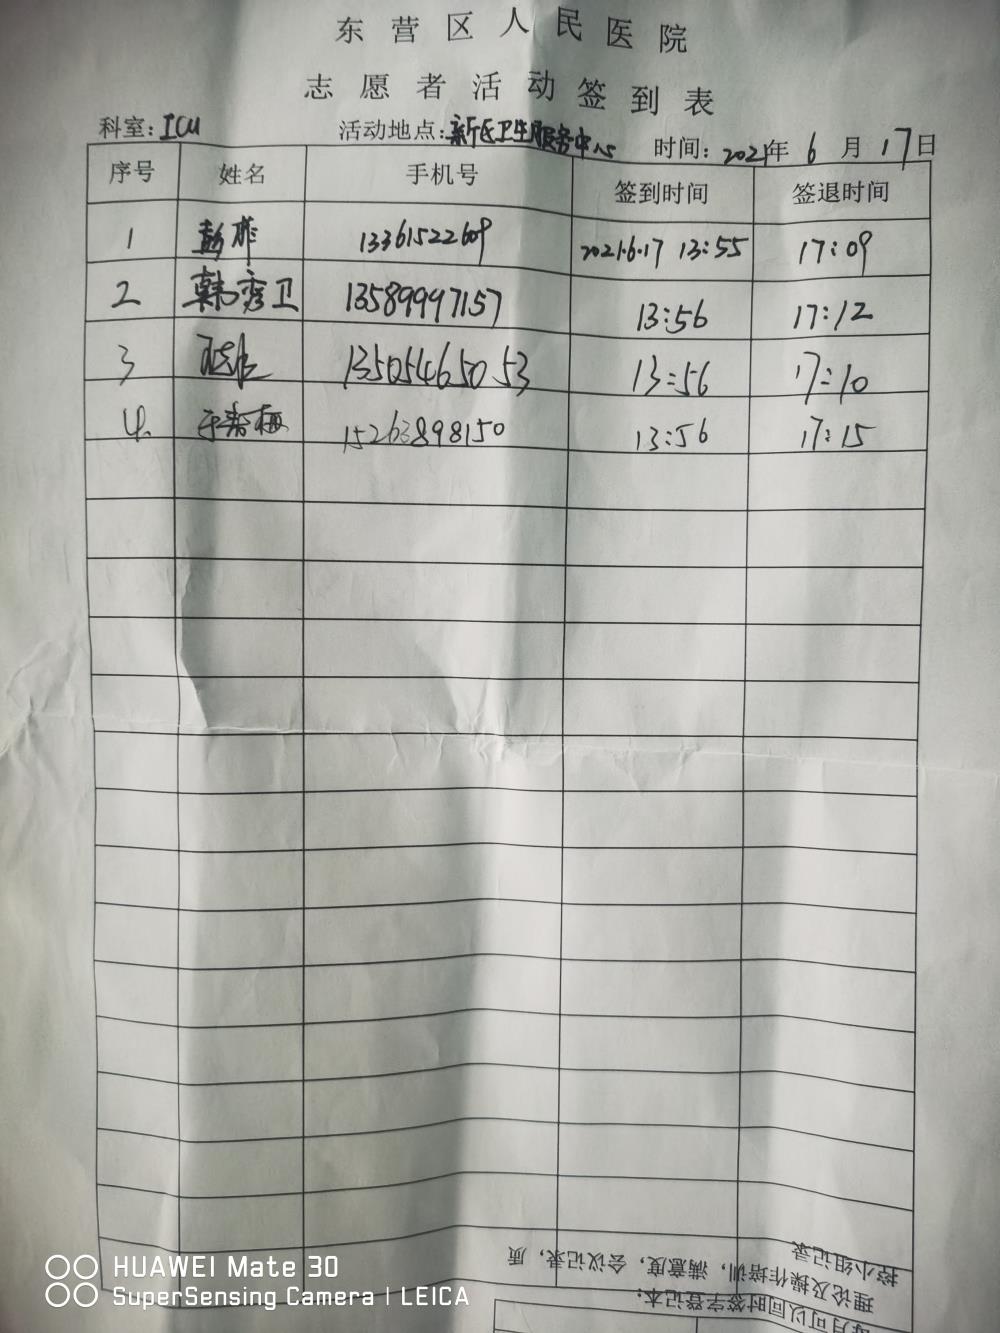 东营区人民医院
志愿者活动签到表
科室: ICU 活动地点: 新区卫生服务中心 时间: 2021年 6 月 17日
序号 姓名 手机号 签到时间 签退时间
1 彭 13361522609 2021.6.17 13:55 17:09
2 韩秀卫 13589997157 13:56 17:12
3 13505465053 13:56 17:10
4. 于春梅 15263898150 13:56 17:15
每月可以回时签字登记本:
理论及操作培训, 满意度, 会议记录, 质
控小组记录
HUAWEI Mate 30
SuperSensing Camera | LEICA